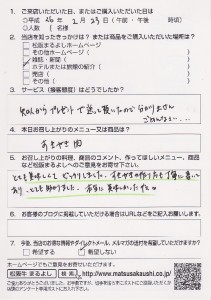 1. ご来店いただいた日、またはご購入いただいた日は
○平成 26 年 2 月 23 日(午前・午後 時頃)
○人数( 名様
2. 当店を知ったきっかけは?または商品をご購入いただいた場所は?
松阪まるよしホームページ
その他ホームページ
雑誌・新聞(
ホテルまたは旅館の紹介(
発売(
その他(
3. サービス(接客態度)はどうですか?
知人からプレゼントで送って頂いたので分かりません
ごめんなさい…
4. 本日お召し上りのメニュー又は商品は?
すきやき 肉
5. お召し上がりの料理、商品のコメント、作ってほしいメニュー、商品
など松阪まるよしホームページへのご意見をお寄せ下さい。
とても美味しくて びっくりしました。
とっても助かりました。本当に美味しかったです。
6. お客様のブログに掲載していただいている場合はURLなどをご記入お願いします。
7. 今後、当店のお得な情報やダイレクトメール、メルマガの送付を希望していただけますか?
希望する
希望しない
ホームページでもご意見をお寄せいただけます。
松阪牛 まるよし 検索 http://www.matsusakaushi.co.jp